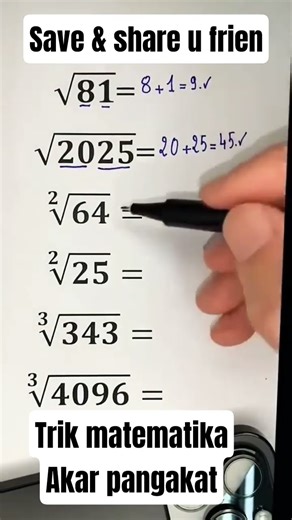 Save & share u frien
√81= 8+1=9.✓
√2025= 20+25=45.✓
²√64 =
²√25 =
³√343 =
³√4096 =
Trik matematika
Akar pangakat